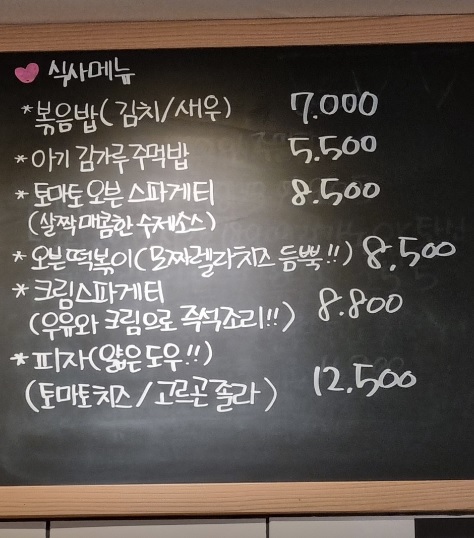 식사메뉴
*볶음밥(김치/새우) 7.000
*아기 김가루 주먹밥 5.500
*토마토 오븐 스파게티 8.500
(살짝 매콤한 수제소스)
*오븐떡볶이(모짜렐라치즈 듬뿍!!) 8.500
*크림스파게티
(우유와 크림으로 즉석조리!!) 8.800
*피자(얇은도우!!)
(토마토치즈/고르곤졸라) 12.500